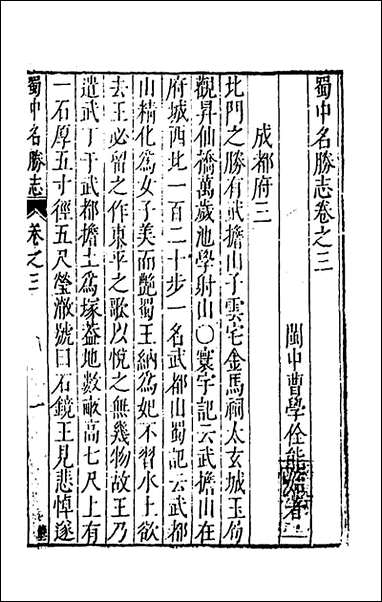 蜀中名勝志卷之三
閩中曹學佺能始著
成都府三
北門之勝有武擔山子雲宅金馬祠太玄城玉局
觀昇仙橋萬歲池學射山〇寰宇記云武擔山在
府城西北一百二十步一名武都山蜀記云武都
山精化爲女子美而艷蜀王納爲妃不習水土欲
去王必留之作東平之歌以悅之無幾物故王乃
遣武丁于武都擔土爲塚蓋地數畝高七尺上有
一石厚五寸徑五尺瑩澈號曰石鏡王見悲悼遂
蜀中名勝志
卷之三
一